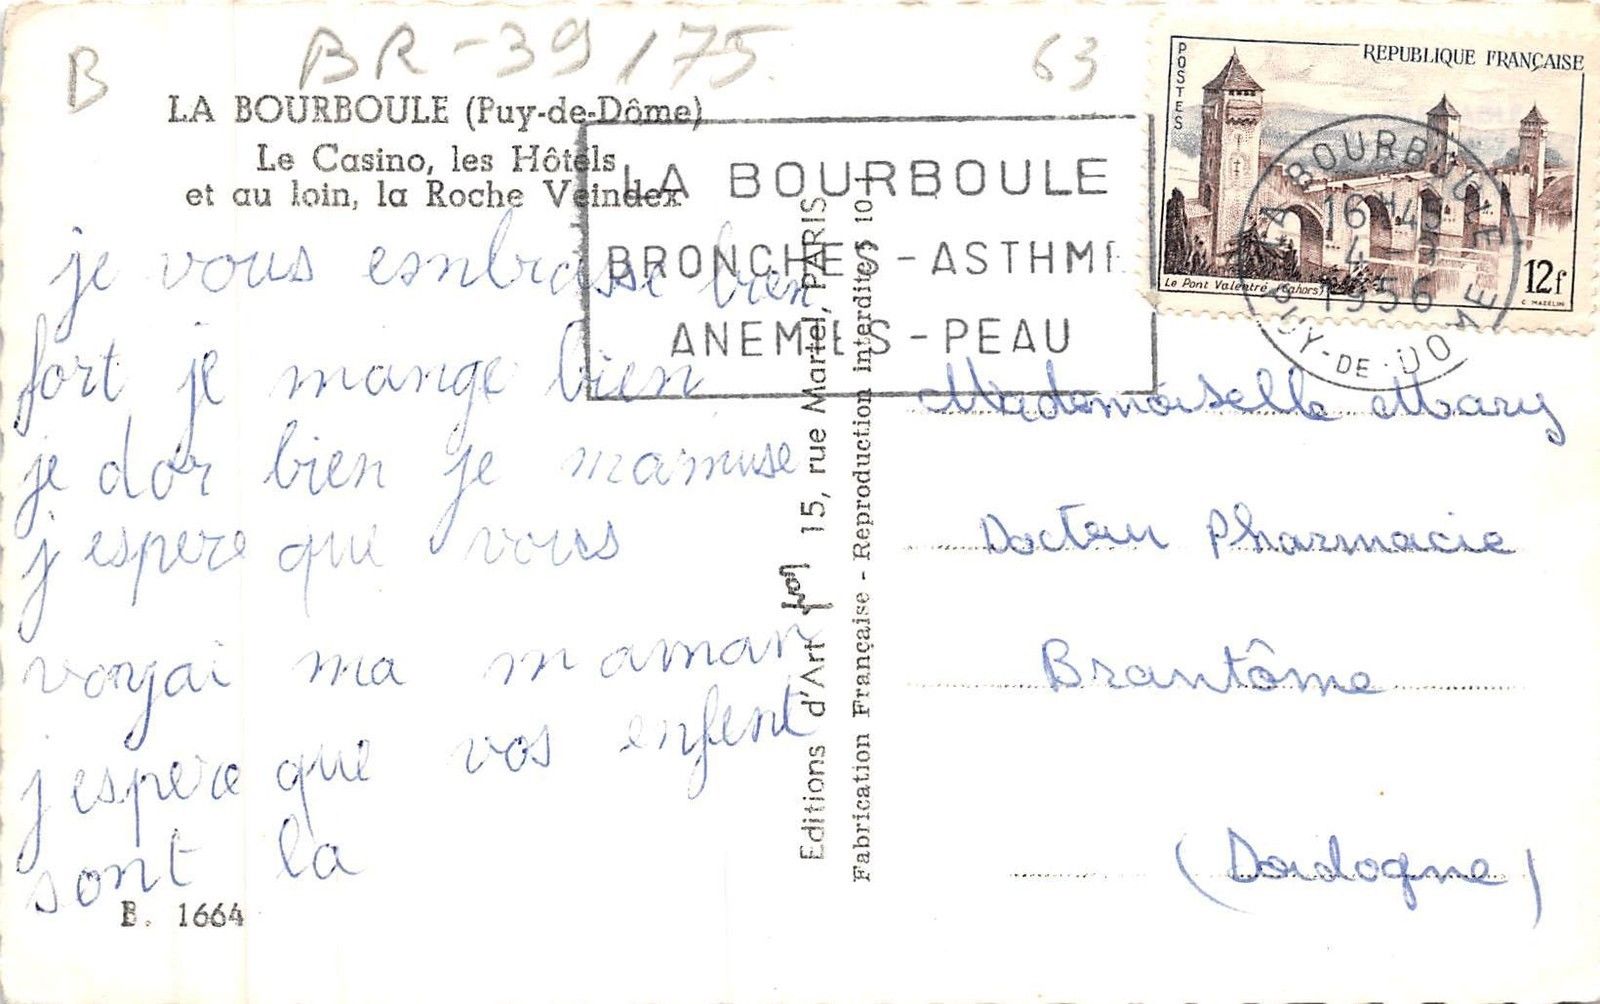 B
BR-39/75
63
LA BOURBOULE (Puy-de-Dôme)
Le Casino, les Hôtels
et au loin, la Roche Veindex
je vous embrasse bien
fort je mange bien
je dor bien je mamuse
j espere que vous
voryai ma maman
j espere que vos enfent
sont la
B. 1664
LA BOURBOULE
BRONCHES - ASTHME
ANEMIES - PEAU
Editions d'Art Yvon 15, rue Martel, PARIS 10
Fabrication Française - Reproduction interdite
POSTES
REPUBLIQUE FRANÇAISE
Le Pont Valentré (Cahors)
12f
C. MAZELIN
LA BOURBOULE
16H45
4 -
1956
PUY-DE-DOME
Mademoiselle Mary
Docteur Pharmacie
Brantôme
(Dordogne)